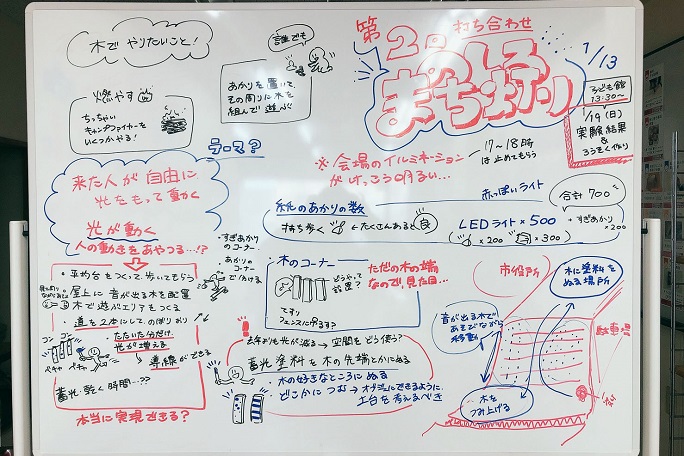 木でやりたいこと!
誰でも
あかりを置いて、
その周りに木を
組んで遊ぶ
燃やす
ちっちゃい
キャンプファイヤーを
いくつかやる!
第2回
打ち合わせ
のしろ
まち灯り
1/13
子ども館
13:30〜
1/19(日)
実験結果
&
ろうそく作り
※会場のイルミネーション
がけっこう明るい…
17〜18時
は止めてもらう
テーマ?
来た人が自由に
光をもって動く
光が動く
人の動きをあやつる…!?
・平均台をつくって、歩いてもらう
屋上に音が出る木を配置
木で遊ぶエリアをつくる
・道を2本にして、のぼりおり
たたいた分だけ
光が増える
→導線ができる
コン コン
ペチャ ペチャ
蓄光・乾く時間…??
本当に実現できる?
・すぎあかり
のコーナー
・あかりの
コーナー
で分ける
紙のあかりの数
持ち歩く ←たくさんあると良
赤っぽいライト
合計700
LEDライト×500
×200 ×300
+すぎあかり
×200
・木のコーナー
どうやって
設置?
てすり
フェンスに
ただの木の端
なので、見た目…
去年よりも光が減る→空間をどう使う?
蓄光塗料を木の先端とかにぬる
・木の好きなところにぬる
どこかにつむ→オブジェにできるように
土台を考えるべき
市役所
木に塗料を
ぬる場所
音が出る木で
あそびながら
移動
駐車場
木を
つみ上げる